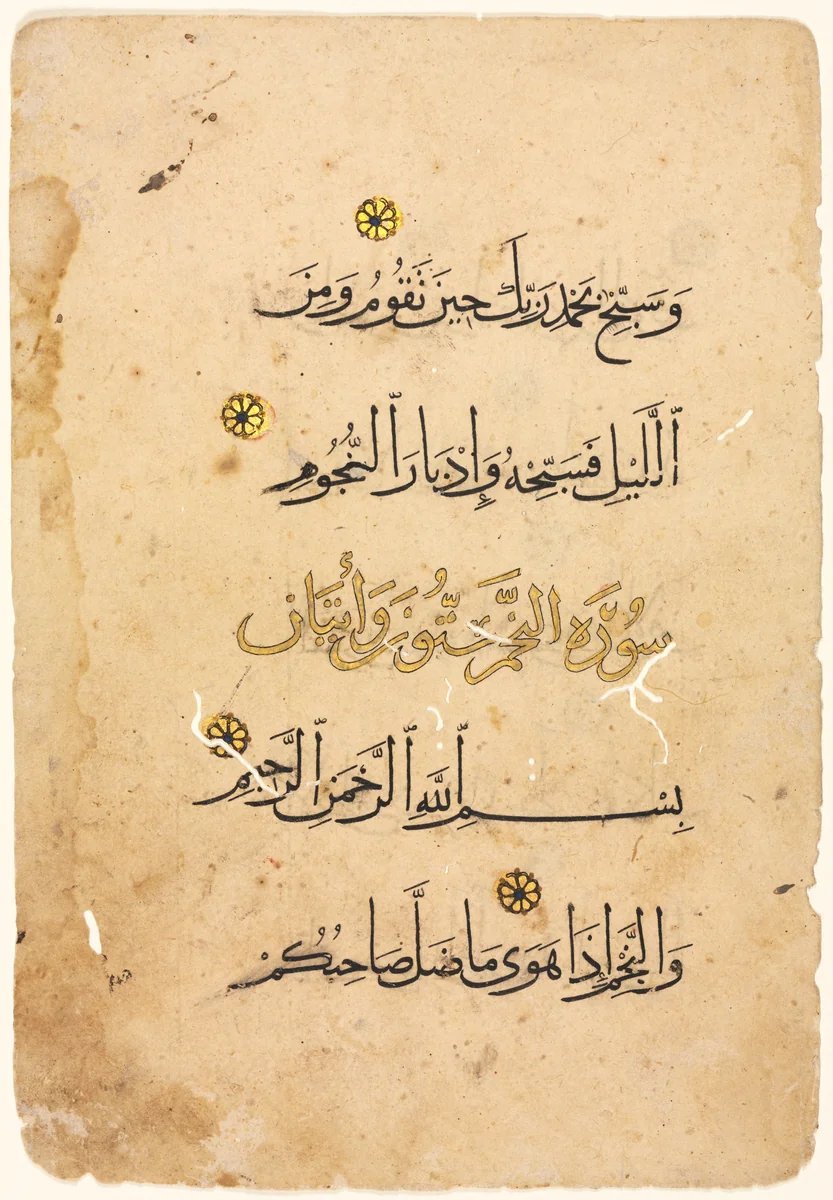 وَسَبِّحْ بِحَمْدِ رَبِّكَ حِينَ تَقُومُ وَمِنَ
ٱللَّيْلِ فَسَبِّحْهُ وَإِدْبَارَ ٱلنُّجُومِ
سُورَة النَّجْمِ سِتُّونَ وَأثْنَتَان
بِسْمِ ٱللَّهِ ٱلرَّحْمَنِ ٱلرَّحِيمِ
وَالنَّجْمِ إِذَا هَوَى مَا ضَلَّ صَاحِبُكُمْ